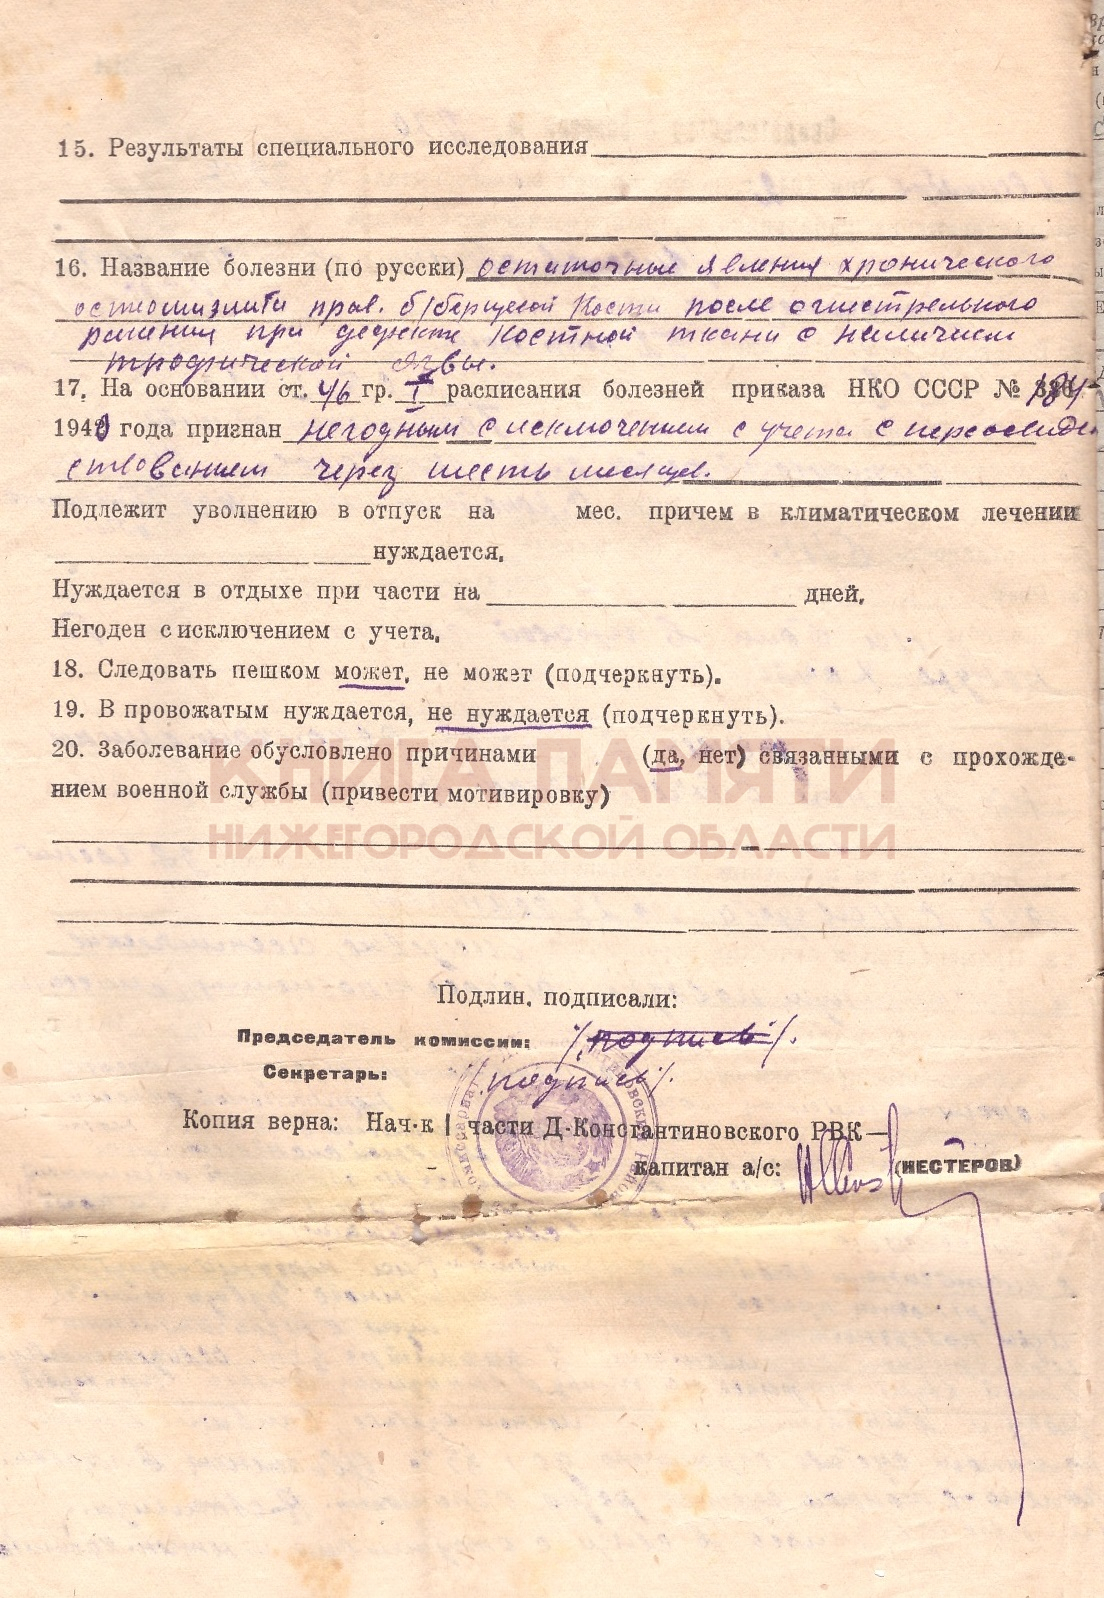 15. Результаты специального исследования
16. Название болезни (по русски) остаточные явления хронического
остеомиэлита прав. б/берцовой кости после огнестрельного
ранения при дефекте костной ткани с наличием
трофической язвы.
17. На основании ст. 46 гр. I расписания болезней приказа НКО СССР № 184
194 года признан негодным с исключением с учета с переосвиде
ствованием через шесть месяцев.
Подлежит уволнению в отпуск на мес. причем в климатическом лечении
нуждается.
Нуждается в отдыхе при части на дней.
Негоден с исключением с учета.
18. Следовать пешком может, не может (подчеркнуть).
19. В провожатым нуждается, не нуждается (подчеркнуть).
20. Заболевание обусловлено причинами (да, нет) связанными с прохожде-
нием военной службы (привести мотивировку)
КНИГА ПАМЯТИ
НИЖЕГОРОДСКОЙ ОБЛАСТИ
Подлин. подписали:
Председатель комиссии: /подпись/.
Секретарь: /подпись/.
Копия верна: Нач-к I части Д-Константиновского РВК—
капитан а/с: (НЕСТЕРОВ)